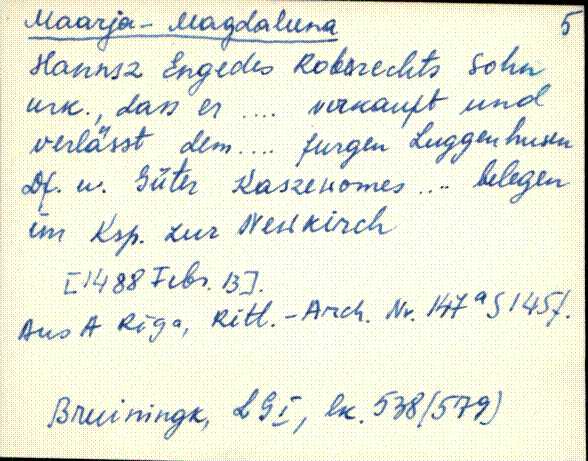 Maarja-Magdaleena 5
Hannsz Engedes Robrechts Sohn
urk., dass er .... verkauft und
verlässt dem .... Jurgen Luggenhusen
Df. u. Güter Kaszenomes .... belegen
im Ksp. zur Neukirch
[1488 Febr. 13].
Aus A Riga, Ritt.-Arch. Nr. 147a § 145f.
Bruiningk, LG I, lk. 538 (579)